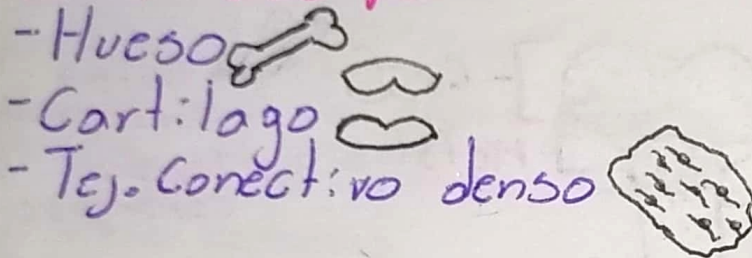 - Hueso
- Cartilago
- Tej. Conectivo denso